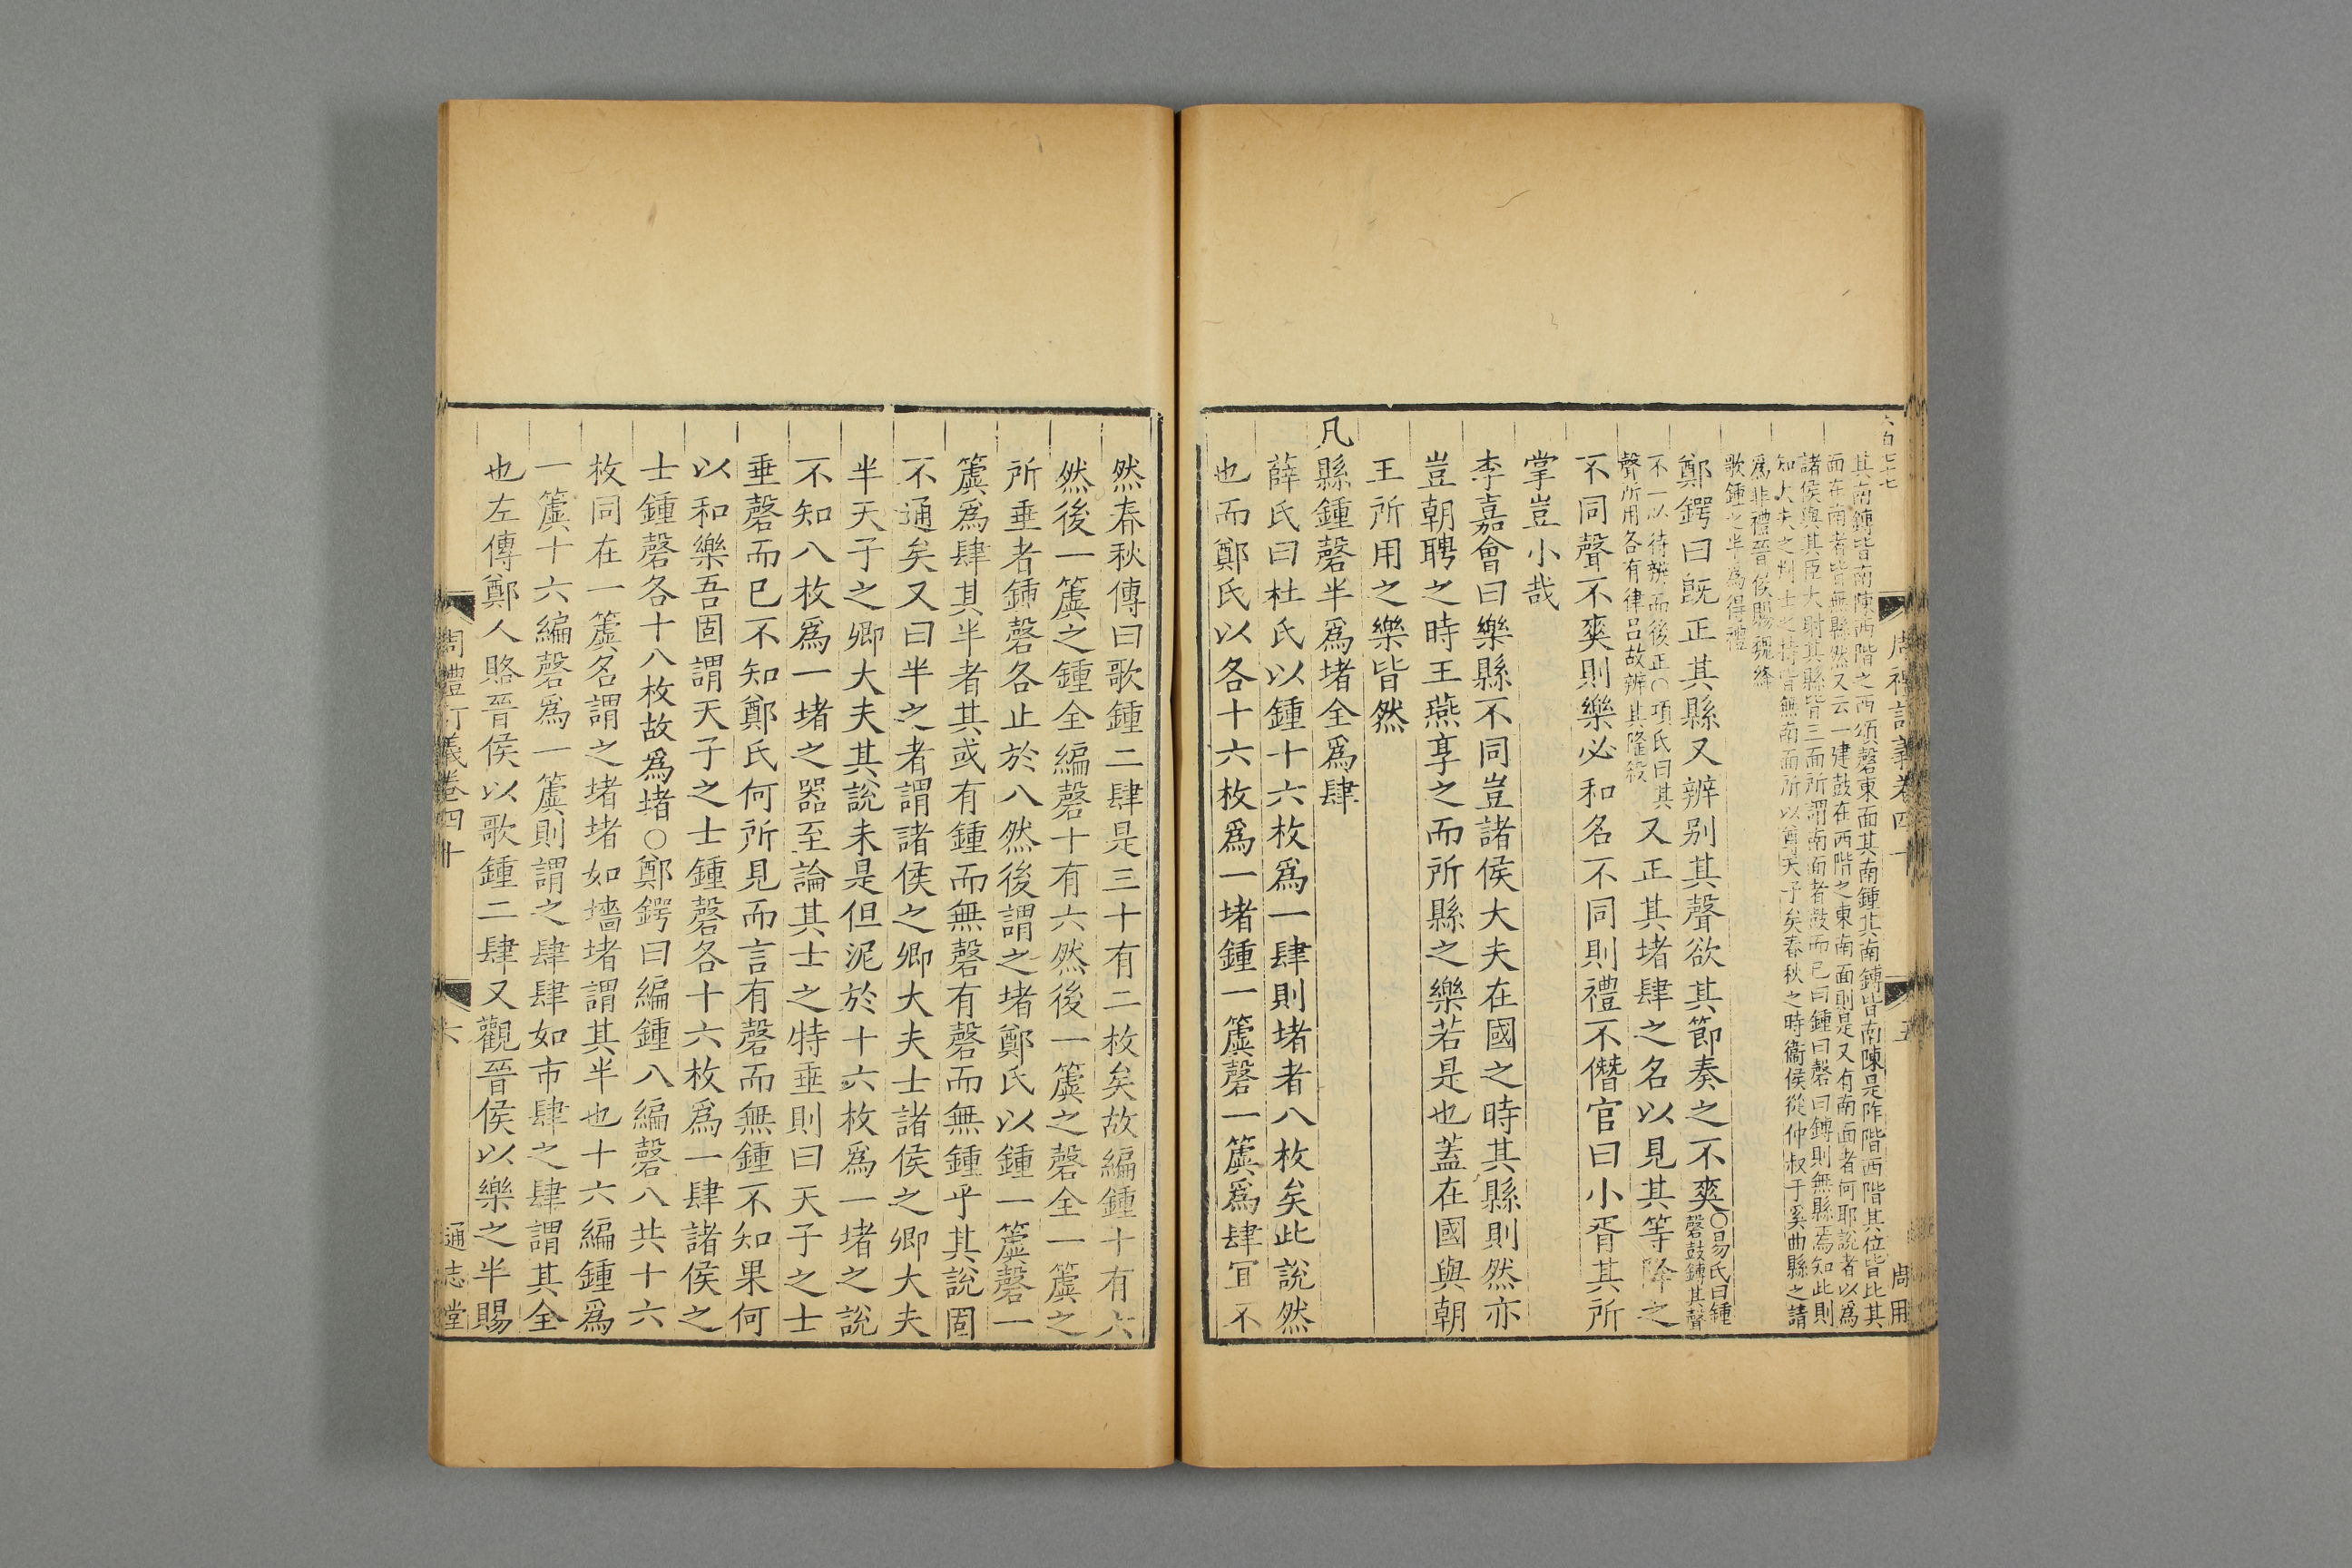 周禮訂義卷四十
五
周用
其南鏄皆南陳西階之西頌磬東面其南鍾其南鏄皆南陳是阼階西階其位皆比其
面在南者皆無縣然又云一建鼓在西階之東南面則是又有南面者何耶說者以爲
諸侯與其臣大射其縣皆三面所謂南面者鼓而已曰鍾曰磬曰鏄則無縣焉知此則
知大夫之判士之特皆無南面所以尊天子矣春秋之時衞侯從仲叔于奚曲縣之請
爲非禮晉侯賜魏絳
歌鍾之半爲得禮
鄭鍔曰旣正其縣又辨别其聲欲其節奏之不爽○易氏曰鍾
磬鼓鏄其聲
不一以待辨而後正○項氏曰其
聲所用各有律呂故辨其隆殺
又正其堵肆之名以見其等降之
不同聲不爽則樂必和名不同則禮不僭官曰小胥其所
掌豈小哉
李嘉會曰樂縣不同豈諸侯大夫在國之時其縣則然亦
豈朝聘之時王燕享之而所縣之樂若是也蓋在國與朝
王所用之樂皆然
凡縣鍾磬半爲堵全爲肆
薛氏曰杜氏以鍾十六枚爲一肆則堵者八枚矣此說然
也而鄭氏以各十六枚爲一堵鍾一簴磬一簴爲肆冝不
然春秋傳曰歌鍾二肆是三十有二枚矣故編鍾十有六
然後一簴之鍾全編磬十有六然後一簴之磬全一簴之
所垂者鍾磬各止於八然後謂之堵鄭氏以鍾一簴磬一
簴爲肆其半者其或有鍾而無磬有磬而無鍾乎其說固
不通矣又曰半之者謂諸侯之卿大夫士諸侯之卿大夫
半天子之卿大夫其說未是但泥於十六枚爲一堵之說
不知八枚爲一堵之器至論其士之特垂則曰天子之士
垂磬而已不知鄭氏何所見而言有磬而無鍾不知果何
以和樂吾固謂天子之士鍾磬各十六枚爲一肆諸侯之
士鍾磬各十八枚故爲堵○鄭鍔曰編鍾八編磬八共十六
枚同在一簴名謂之堵堵如墻堵謂其半也十六編鍾爲
一簴十六編磬爲一簴則謂之肆肆如市肆之肆謂其全
也左傳鄭人賂晉侯以歌鍾二肆又觀晉侯以樂之半賜
周禮訂義卷四十
六
通志堂